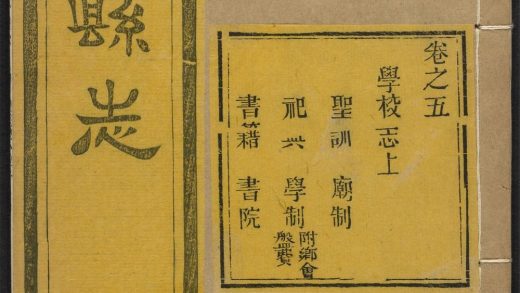 卷之五
學校志上
聖訓 廟制
祀典 學制 附鄉會
盤費
書籍 書院
縣志